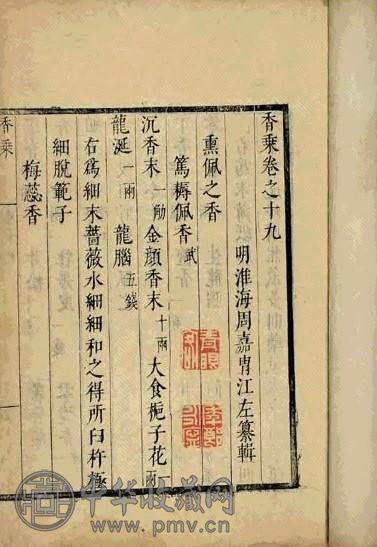 香乘卷之十九
明淮海周嘉胄江左纂輯
熏佩之香
篤耨佩香武
沉香末一觔金顔香末十兩大食梔子花一兩
龍涎一兩 龍腦五錢
右爲細末薔薇水細細和之得所臼杵極
細脫範子
梅蕊香
香乘
中华收藏网
www.pmv.cn